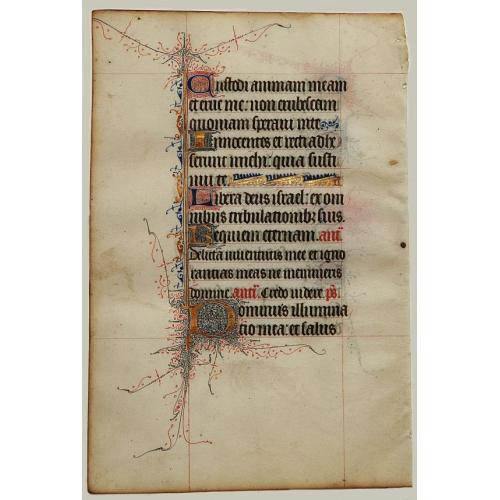 Custodi animam meam
et erue me: non erubescam
quoniam speravi in te
Innocentes et recti adhe
serunt michi: quia susti
nui te.
Libera deus israel: ex om
nibus tribulationibus suis.
Requiem eternam. ant.
Delicta iuventutis mee et igno
rancias meas ne memineris
domine. ant. Credo videre. ps.
Dominus illumina
tio mea: et salus